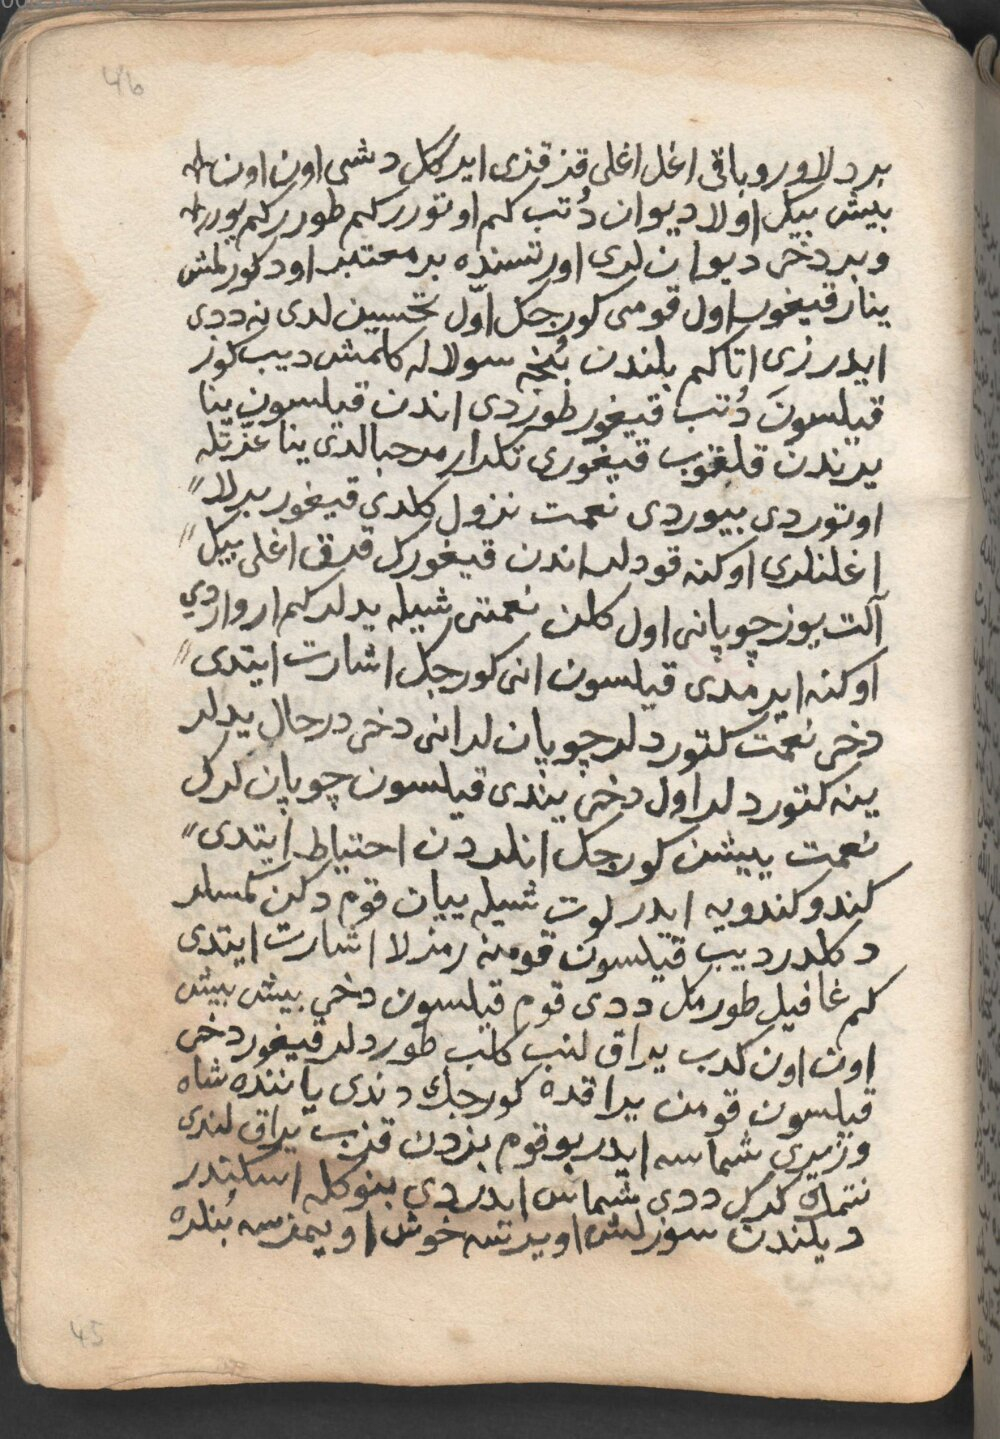 46
بر دلاور و باقی اغل اغلی قز قزی ایدر ککل دشی اون اون
بیش بیکل اولا دیوان دُتب کم اوتورر کم طورر کم یورر
و بر دخی دیوان لری اورتسنده بر معتبر اود کورنمش
ینار قیغوب اول قومی کورجکل اوّل تحسین لدی نه ددی
ایدر زی اتا کم بلندن بُنجه سولاله کلمش دیب کوز
قیلسون دُتب قیغور طوردی اندن قیلسون ینا
یرندن قلقوب قیغوری تکرار مرحبالدی ینا عزّتله
اوتوردی بیوردی نعمت نزول کلدی قیغور برلا
اغلنلری اوکنه قودلر اندن قیغورک قرق اغلی بیکل
آلت یوز چوپانی اول کلن نعمتی شیله یدلر کم ارواردی
اوکنه ایرمدی قیلسون انی کورجکل اشارت ایتدی
دخی نعمت کتوردلر چوپان لر انی دخی در حال یدلر
ینه کتوردلر اول دخی یندی قیلسون چوپان لرک
نعمت ییشن کورجکل انلردن احتیاط ایتدی
کندو کندویه ایدر لوت شیله ییان قوم دکن کمسلر
دکلدر دیب قیلسون قومنه رمزلا اشارت ایتدی
کم غافیل طورمکل ددی قوم قیلسون دخی بیش بیش
اون اون کدب یراق لنب کلب طوردلر قیغور دخی
قیلسون قومن یراقده کورجک دندی یاننده شاه
وزیری شماسه ایدر بو قوم بزدن قزب یراق لندی
نتمک کرک ددی شماس ایدردی بنوکله اسکندر
دیلندن سوزلش اویرتسه خوش اویمزسه بُنلره
45